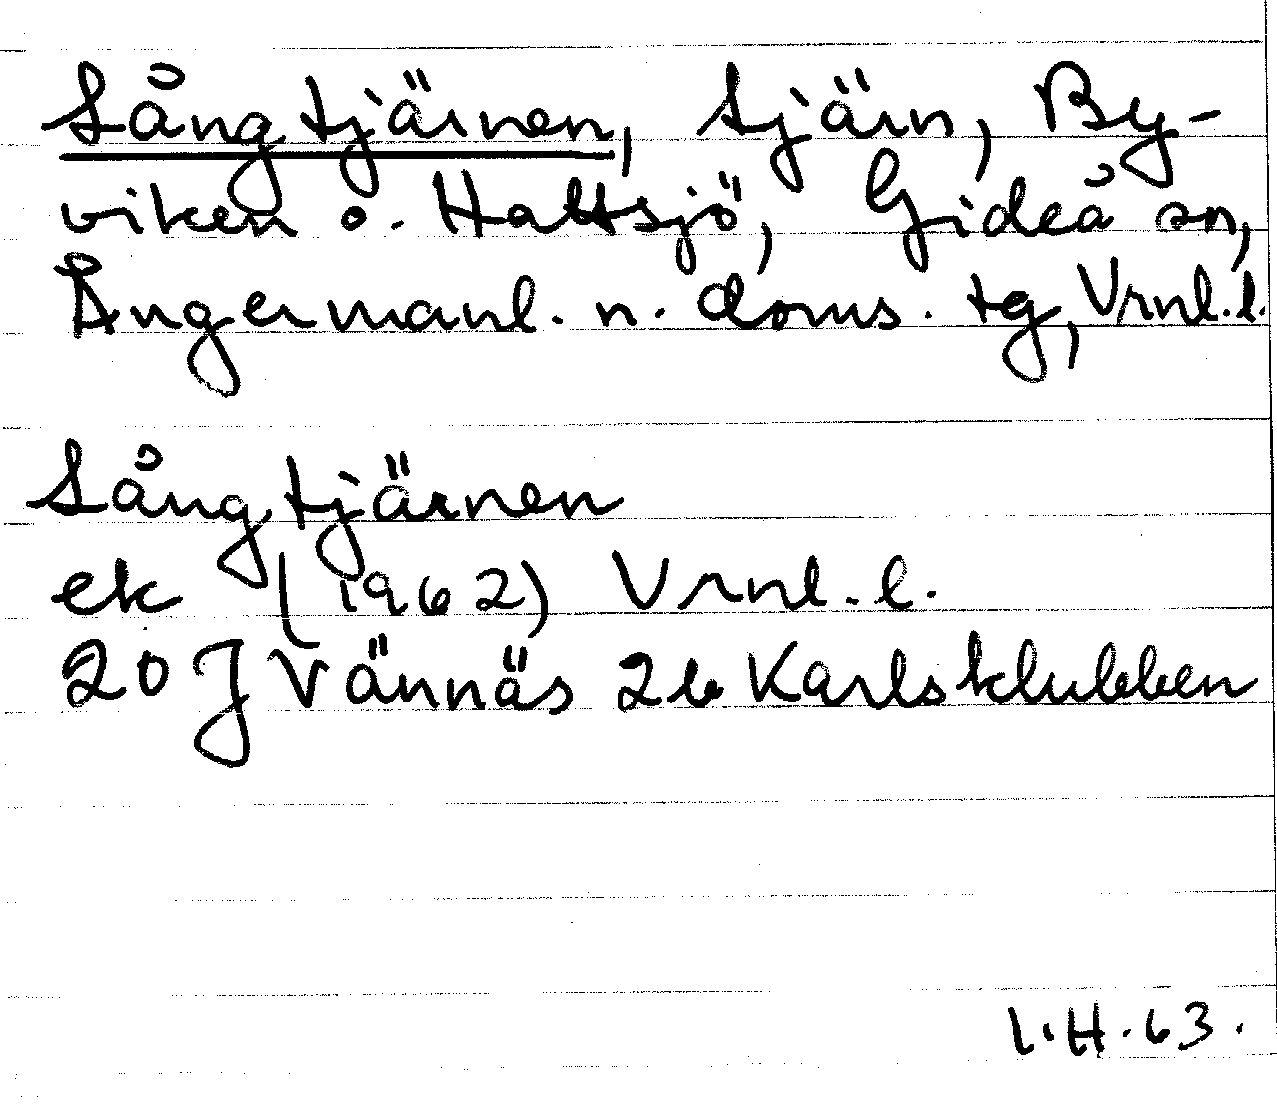 Sångtjärnen, tjärn, By-
viken o. Hattsjö, Gideå sn,
Ångermanl. n. doms. tg, Vrnl. l.
Sångtjärnen
ek (1962) Vrnl. l.
20 J Vännäs 2b Karlsklubben
I.H. 63.